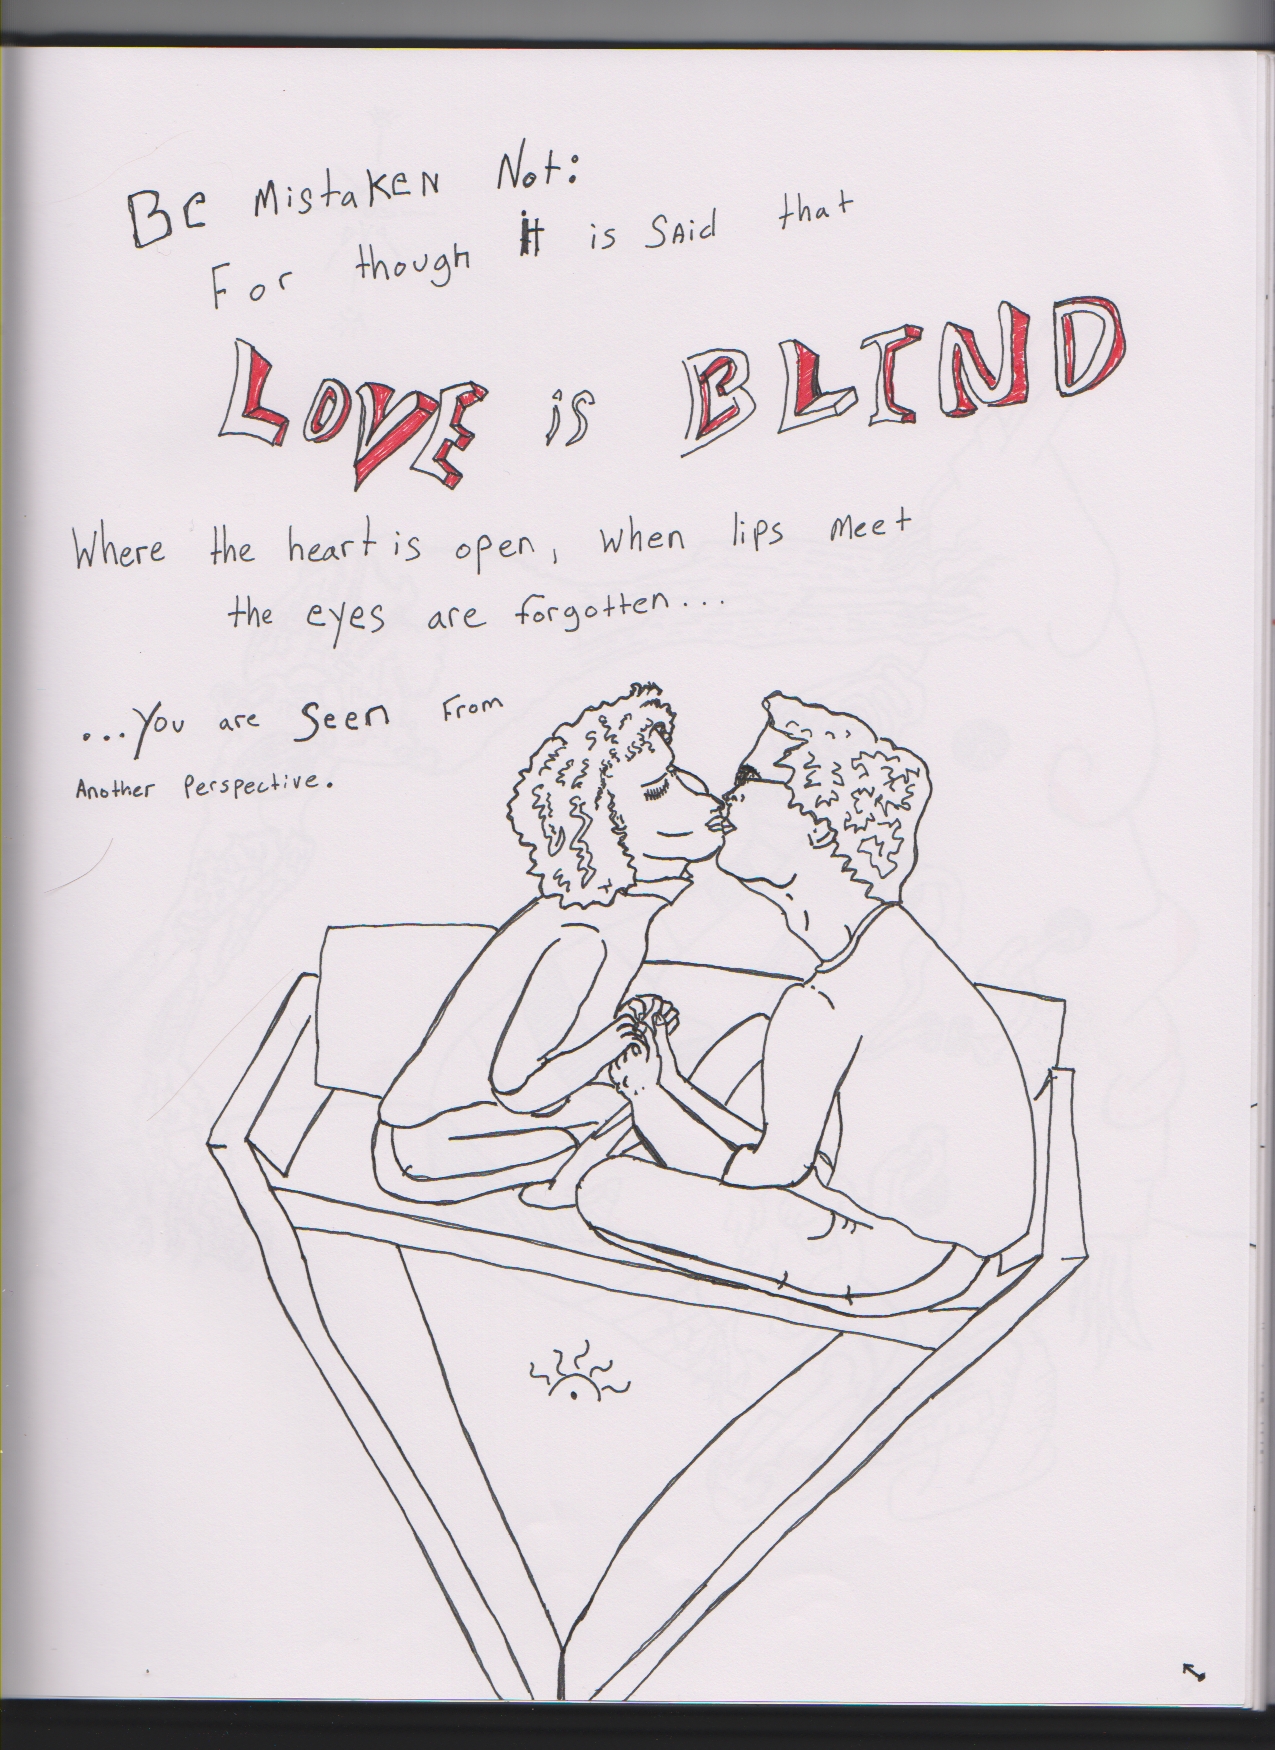 Be Mistaken Not:
For though it is said that
LOVE is BLIND
Where the heart is open, when lips meet
the eyes are forgotten...
...You are seen from
Another Perspective.